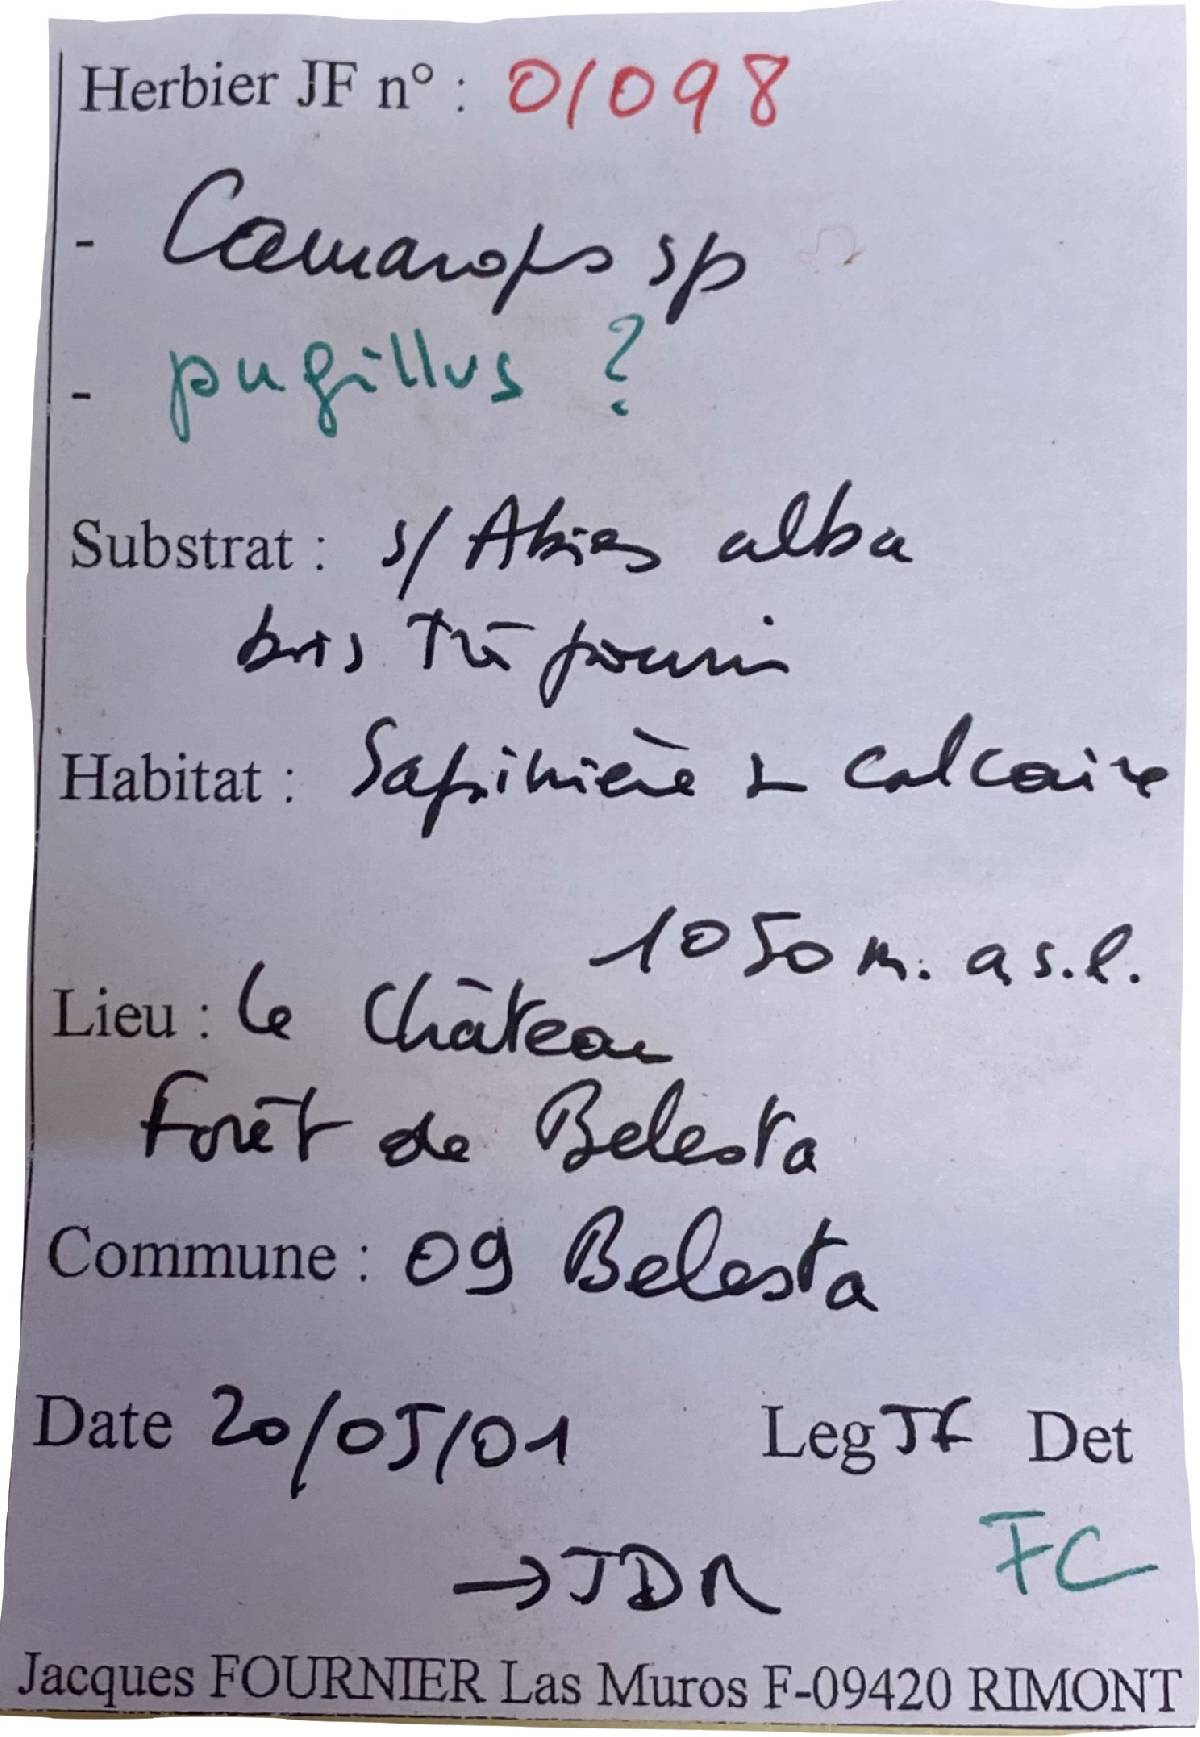 Herbier JF n° : 01098
- Camarops sp
- pugillus ?
Substrat : s/ Abies alba
bois très pourri
Habitat : Sapinière calcaire
1050 m. a s.l.
Lieu : le Château
Forêt de Belesta
Commune : 09 Belesta
Date 20/05/01 Leg JF Det
FC
→ JDR
Jacques FOURNIER Las Muros F-09420 RIMONT